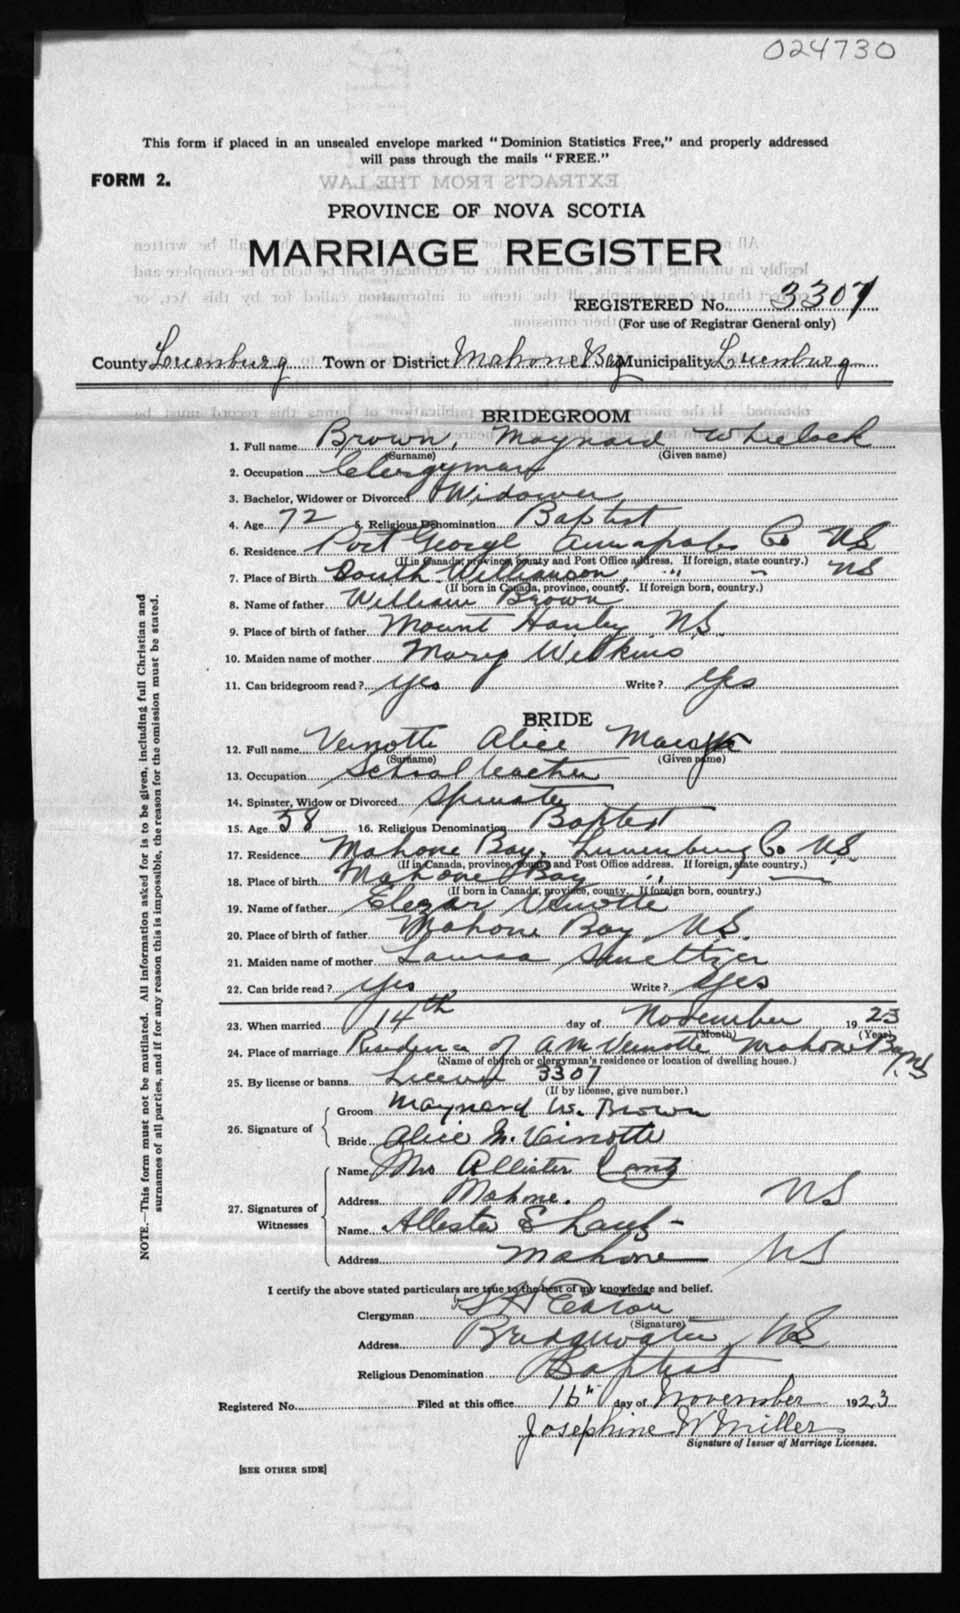 024730
This form if placed in an unsealed envelope marked "Dominion Statistics Free," and properly addressed
will pass through the mails "FREE."
FORM 2.
EXTRACTS FROM THE LAW
PROVINCE OF NOVA SCOTIA
MARRIAGE REGISTER
REGISTERED No. 3307
(For use of Registrar General only)
County Lunenburg Town or District Mahone Bay Municipality Lunenburg
BRIDEGROOM
1. Full name Brown, Maynard Wheelock
(Surname) (Given name)
2. Occupation Clergyman
3. Bachelor, Widower or Divorced Widower
4. Age 72 5. Religious Denomination Baptist
6. Residence Port George Annapolis Co NS
(If in Canada, province, county and Post Office address. If foreign, state country.)
7. Place of Birth South Williamson, " - NS
(If born in Canada, province, county. If foreign born, country.)
8. Name of father William Brown
9. Place of birth of father Mount Hanley NS.
10. Maiden name of mother Mary Wilkins
11. Can bridegroom read? yes Write? yes
BRIDE
12. Full name Veinotte Alice
(Surname) (Given name)
13. Occupation School teacher
14. Spinster, Widow or Divorced Spinster
15. Age 58 16. Religious Denomination Baptist
17. Residence Mahone Bay, Lunenburg Co NS.
(If in Canada, province, county and Post Office address. If foreign, state country.)
18. Place of birth Mahone Bay " —
(If born in Canada, province, county. If foreign born, country.)
19. Name of father Elezar Veinotte
20. Place of birth of father Mahone Bay NS.
21. Maiden name of mother Smeltzer
22. Can bride read? yes Write? yes
23. When married 14th day of November 1923
(Month) (Year)
24. Place of marriage Residence of A M Veinotte Mahone Bay NS
(Name of church or clergyman's residence or location of dwelling house.)
25. By license or banns License 3307
(If by license, give number.)
26. Signature of
Groom Maynard W. Brown
Bride Alice M. Veinotte
27. Signatures of Witnesses
Name Mrs Allister Lantz
Address Mahone. NS
Name Allester E Lantz
Address Mahone NS
I certify the above stated particulars are true to the best of my knowledge and belief.
Clergyman S H Eaton
(Signature)
Address Bridgewater, NS
Religious Denomination Baptist
Registered No. Filed at this office 16" day of November 1923
Josephine W Miller
Signature of Issuer of Marriage Licenses.
[SEE OTHER SIDE]
NOTE.—This form must not be mutilated. All information asked for is to be given, including full Christian and
surnames of all parties, and if for any reason this is impossible, the reason for the omission must be stated.